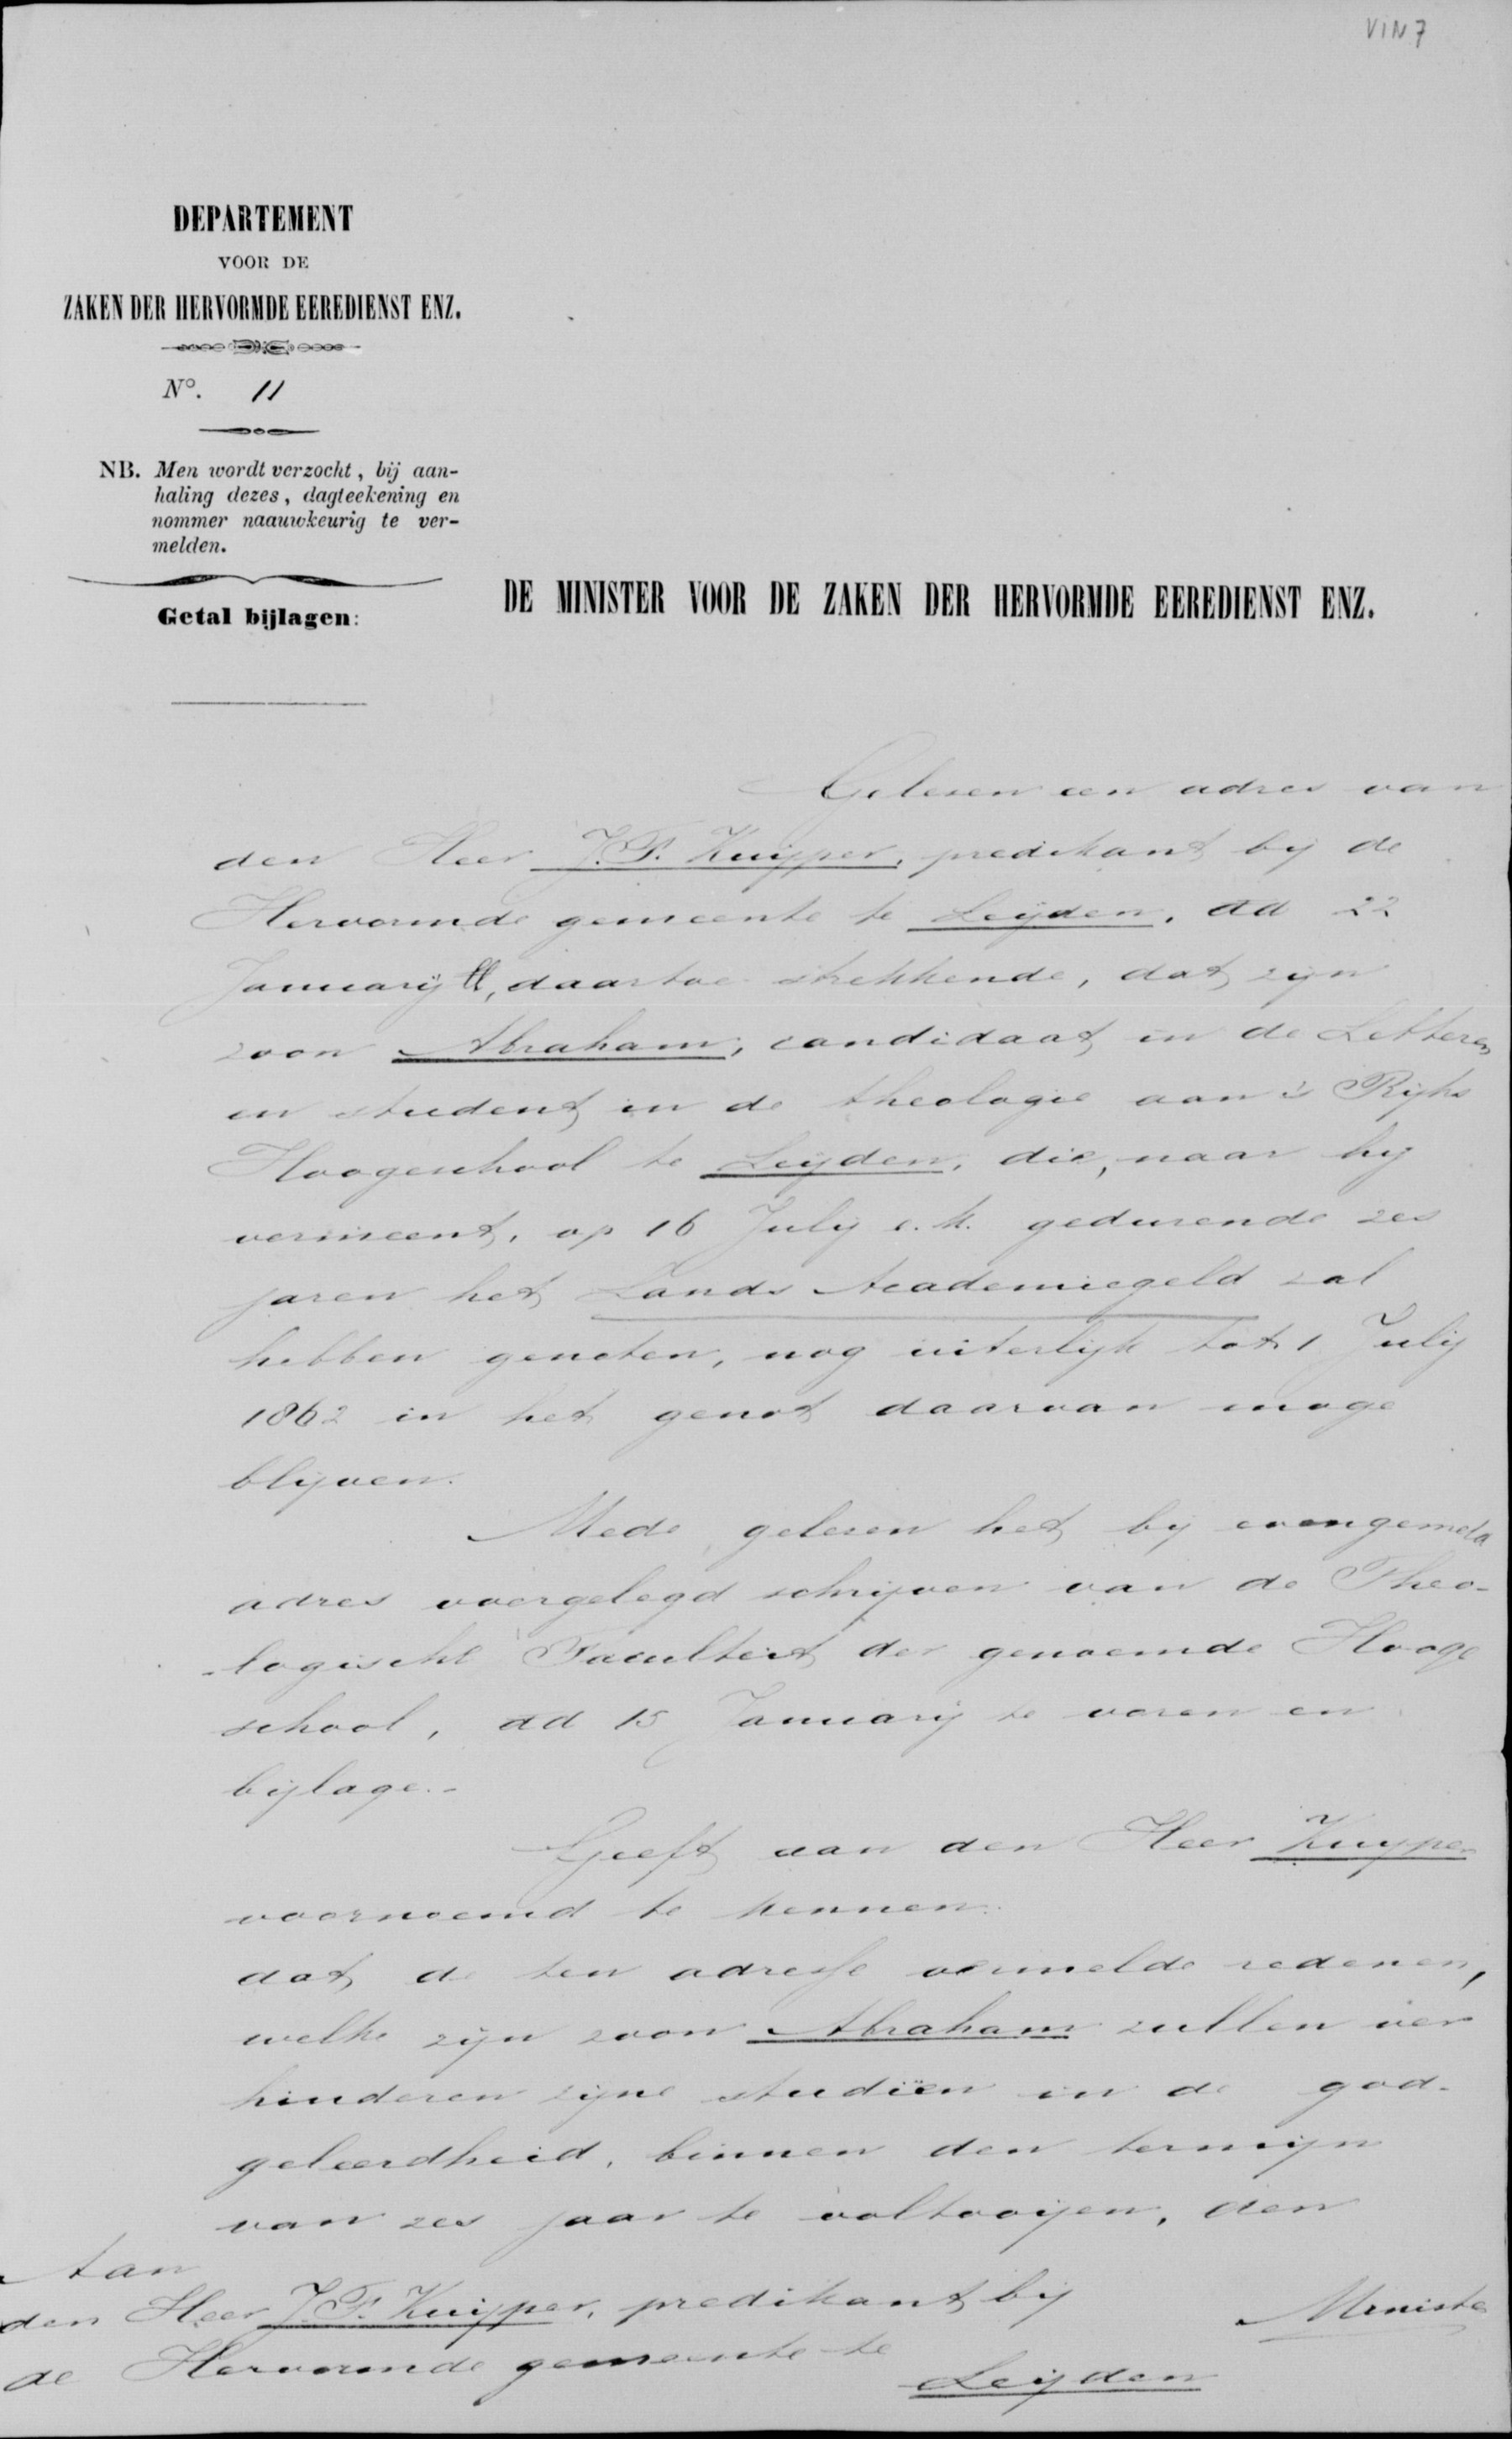 VIN7
DEPARTEMENT
VOOR DE
ZAKEN DER HERVORMDE EEREDIENST ENZ.
N°. 11
NB. Men wordt verzocht, bij aan-
haling dezes, dagteekening en
nommer naauwkeurig te ver-
melden.
Getal bijlagen:
DE MINISTER VOOR DE ZAKEN DER HERVORMDE EEREDIENST ENZ.
Gelezen een adres van
den Heer J.F. Kuijper, predikant bij de
Hervormde gemeente te Leijden, dd 22
Januarij ll, daartoe strekkende, dat zijn
zoon Abraham, candidaat in de Letteren
en student in de theologie aan 's Rijks
Hoogeschool te Leijden, die, naar hij
vermeent, op 16 Julij e.k. gedurende zes
jaren het Lands Academiegeld zal
hebben genoten, nog uiterlijk tot 1 Julij
1862 in het genot daarvan moge
blijven.
Mede gelezen het bij evengemeld
adres overgelegd schrijven van de Theo-
logische Faculteit der genoemde Hooge
school, dd 15 Januarij te voren en
bijlage.-
Geeft aan den Heer Kuyper
voornoemd te kennen:
dat de ten adresse vermelde redenen,
welke zijn zoon Abraham zullen ver
hinderen zijne studiën in de god-
geleerdheid, binnen den termijn
van zes jaar te voltooijen, den
Minister
Aan
den Heer J.F. Kuijper, predikant bij
de Hervormde gemeente te
Leijden